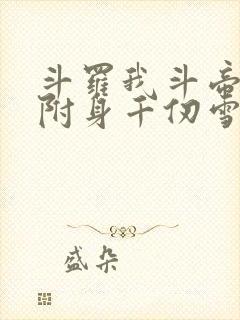 斗羅我斗帝
附身千仞雪
盛朵